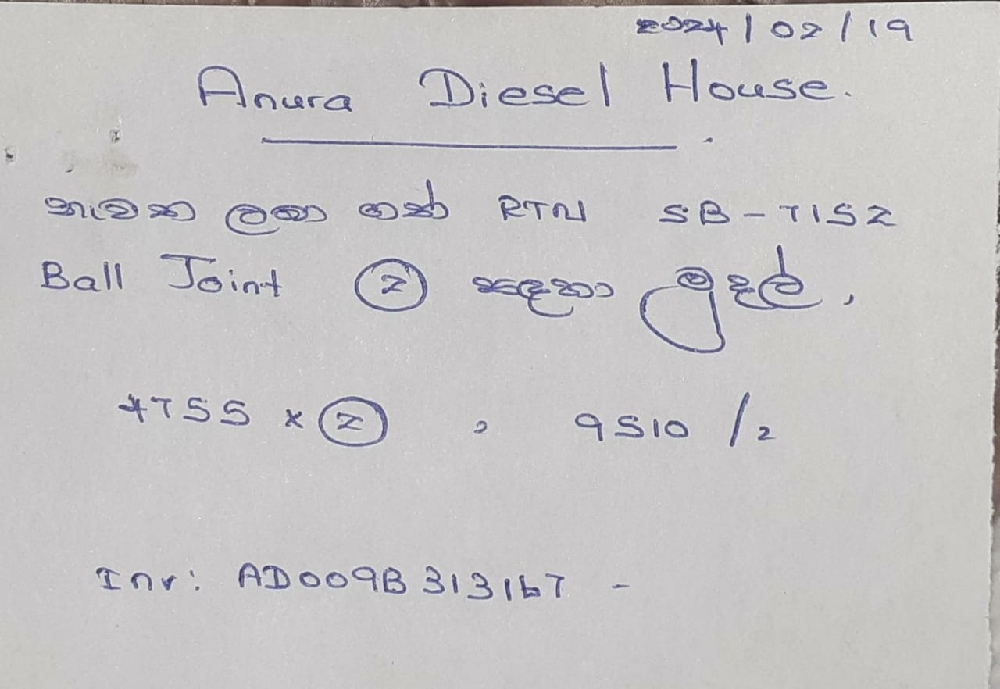 2024/02/19
Anura Diesel House.
නැවත ලබා ගත් RTN SB-7152
Ball Joint 2 සඳහා මුදල්,
4755 x 2 , 9510/2
Inv: AD009B313167 -